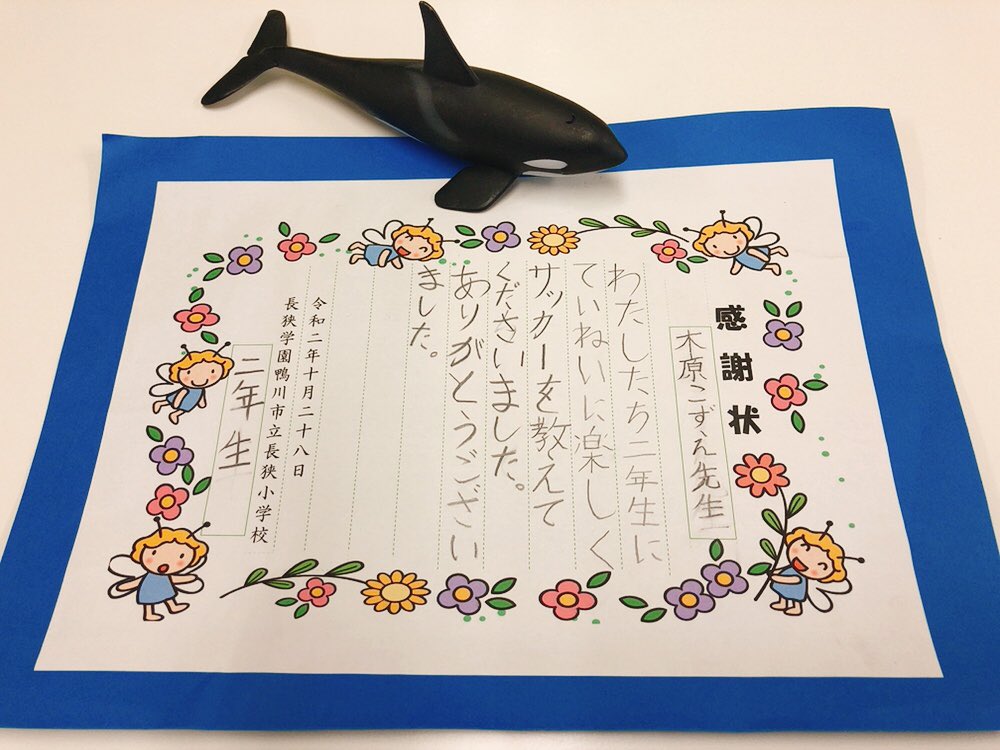 感謝状
木原こずえ先生
わたしたち二年生に
ていねいに楽しく
サッカーを教えて
くださいました。
ありがとうござい
ました。
令和二年十月二十八日
長狭学園鴨川市立長狭小学校
二年生